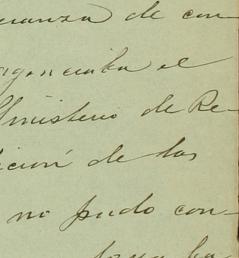 ranza de con-
agenciaba el
Ministerio de Re-
ición de las
no pudo con-